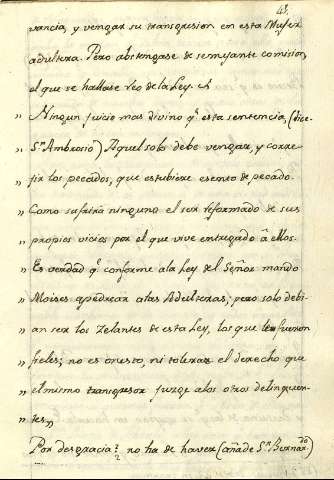 48,
vancia, y vengar su transgresion en esta Muger
adultera. Pero abstengase de semejante comision,
el que se hallase reo de la Ley. A
„ Ningun juicio mas divino q.e esta sentencia, (dice
„ S.n Ambrosio) Aquel solo debe vengar, y corre-
„ jir los pecados, que estubiere esento de pecado.
„ Como sufrirá ninguno el ser reformado de sus
„ propios vicios por el que vive entregado â ellos.
„ Es verdad q.e conforme ala Ley del Señor mandó
„ Moises apedrear alas Adulteras; pero solo debi-
„ an ser los Zelantes de esta Ley, los que le fueron
„ fieles; no es onesto, ni tolerar el derecho que
„ el mismo transgresor juzge alos otros delinquen-
„ tes„
Por desgracia? no ha de haver (añade S.n Bernardo)